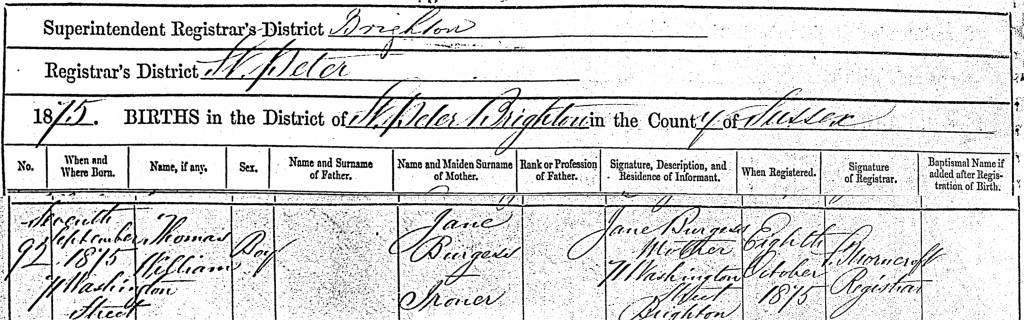 Superintendent Registrar's District Brighton
Registrar's District St. Peter
1875. BIRTHS in the District of St. Peter Brighton in the County of Sussex
No. When and Where Born. Name, if any. Sex. Name and Surname of Father. Name and Maiden Surname of Mother. Rank or Profession of Father. Signature, Description, and Residence of Informant. When Registered. Signature of Registrar. Baptismal Name if added after Registration of Birth.
92
Seventh
September
1875
71 Washington
Street
Thomas
William
Boy
Jane
Burgess
Ironer
Jane Burgess
Mother
71 Washington
Street
Brighton
Eighth
October
1875
Thorncroft
Registrar